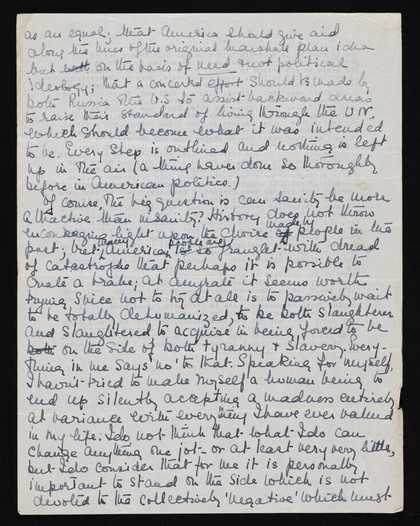 as an equal; that America should give aid
along the lines of the original Marshall plan idea
but on the basis of need & not political
ideology; that a concerted effort should be made by
both Russia & the U.S to assist backward areas
to raise their standard of living through the U N.
which should become what it was intended
to be. Every step is outlined and nothing is left
up in the air (a thing never done so thoroughly
before in American politics.)
Of course the big question is can sanity be more
attractive than insanity? History does not throw
encouraging light upon the choice made by people in the
past; but, many American people are so fraught with dread
of catastrophe that perhaps it is possible to
create a brake; at anyrate it seems worth
trying, since not to try at all is to passively wait
to be totally dehumanized, to be both slaughterer
and slaughtered to acquise in being forced to be
on the side of both tyranny & slavery. Every-
thing in me says 'no' to that. Speaking for myself,
I havn't tried to make myself a human being to
end up silently accepting a madness entirely
at variance with everything I have ever valued
in my life. I do not think that what I do can
change anything one jot – or at least very very little,
but I do consider that for me it is personally
important to stand on the side which is not
devoted to the collectively 'negative' which must